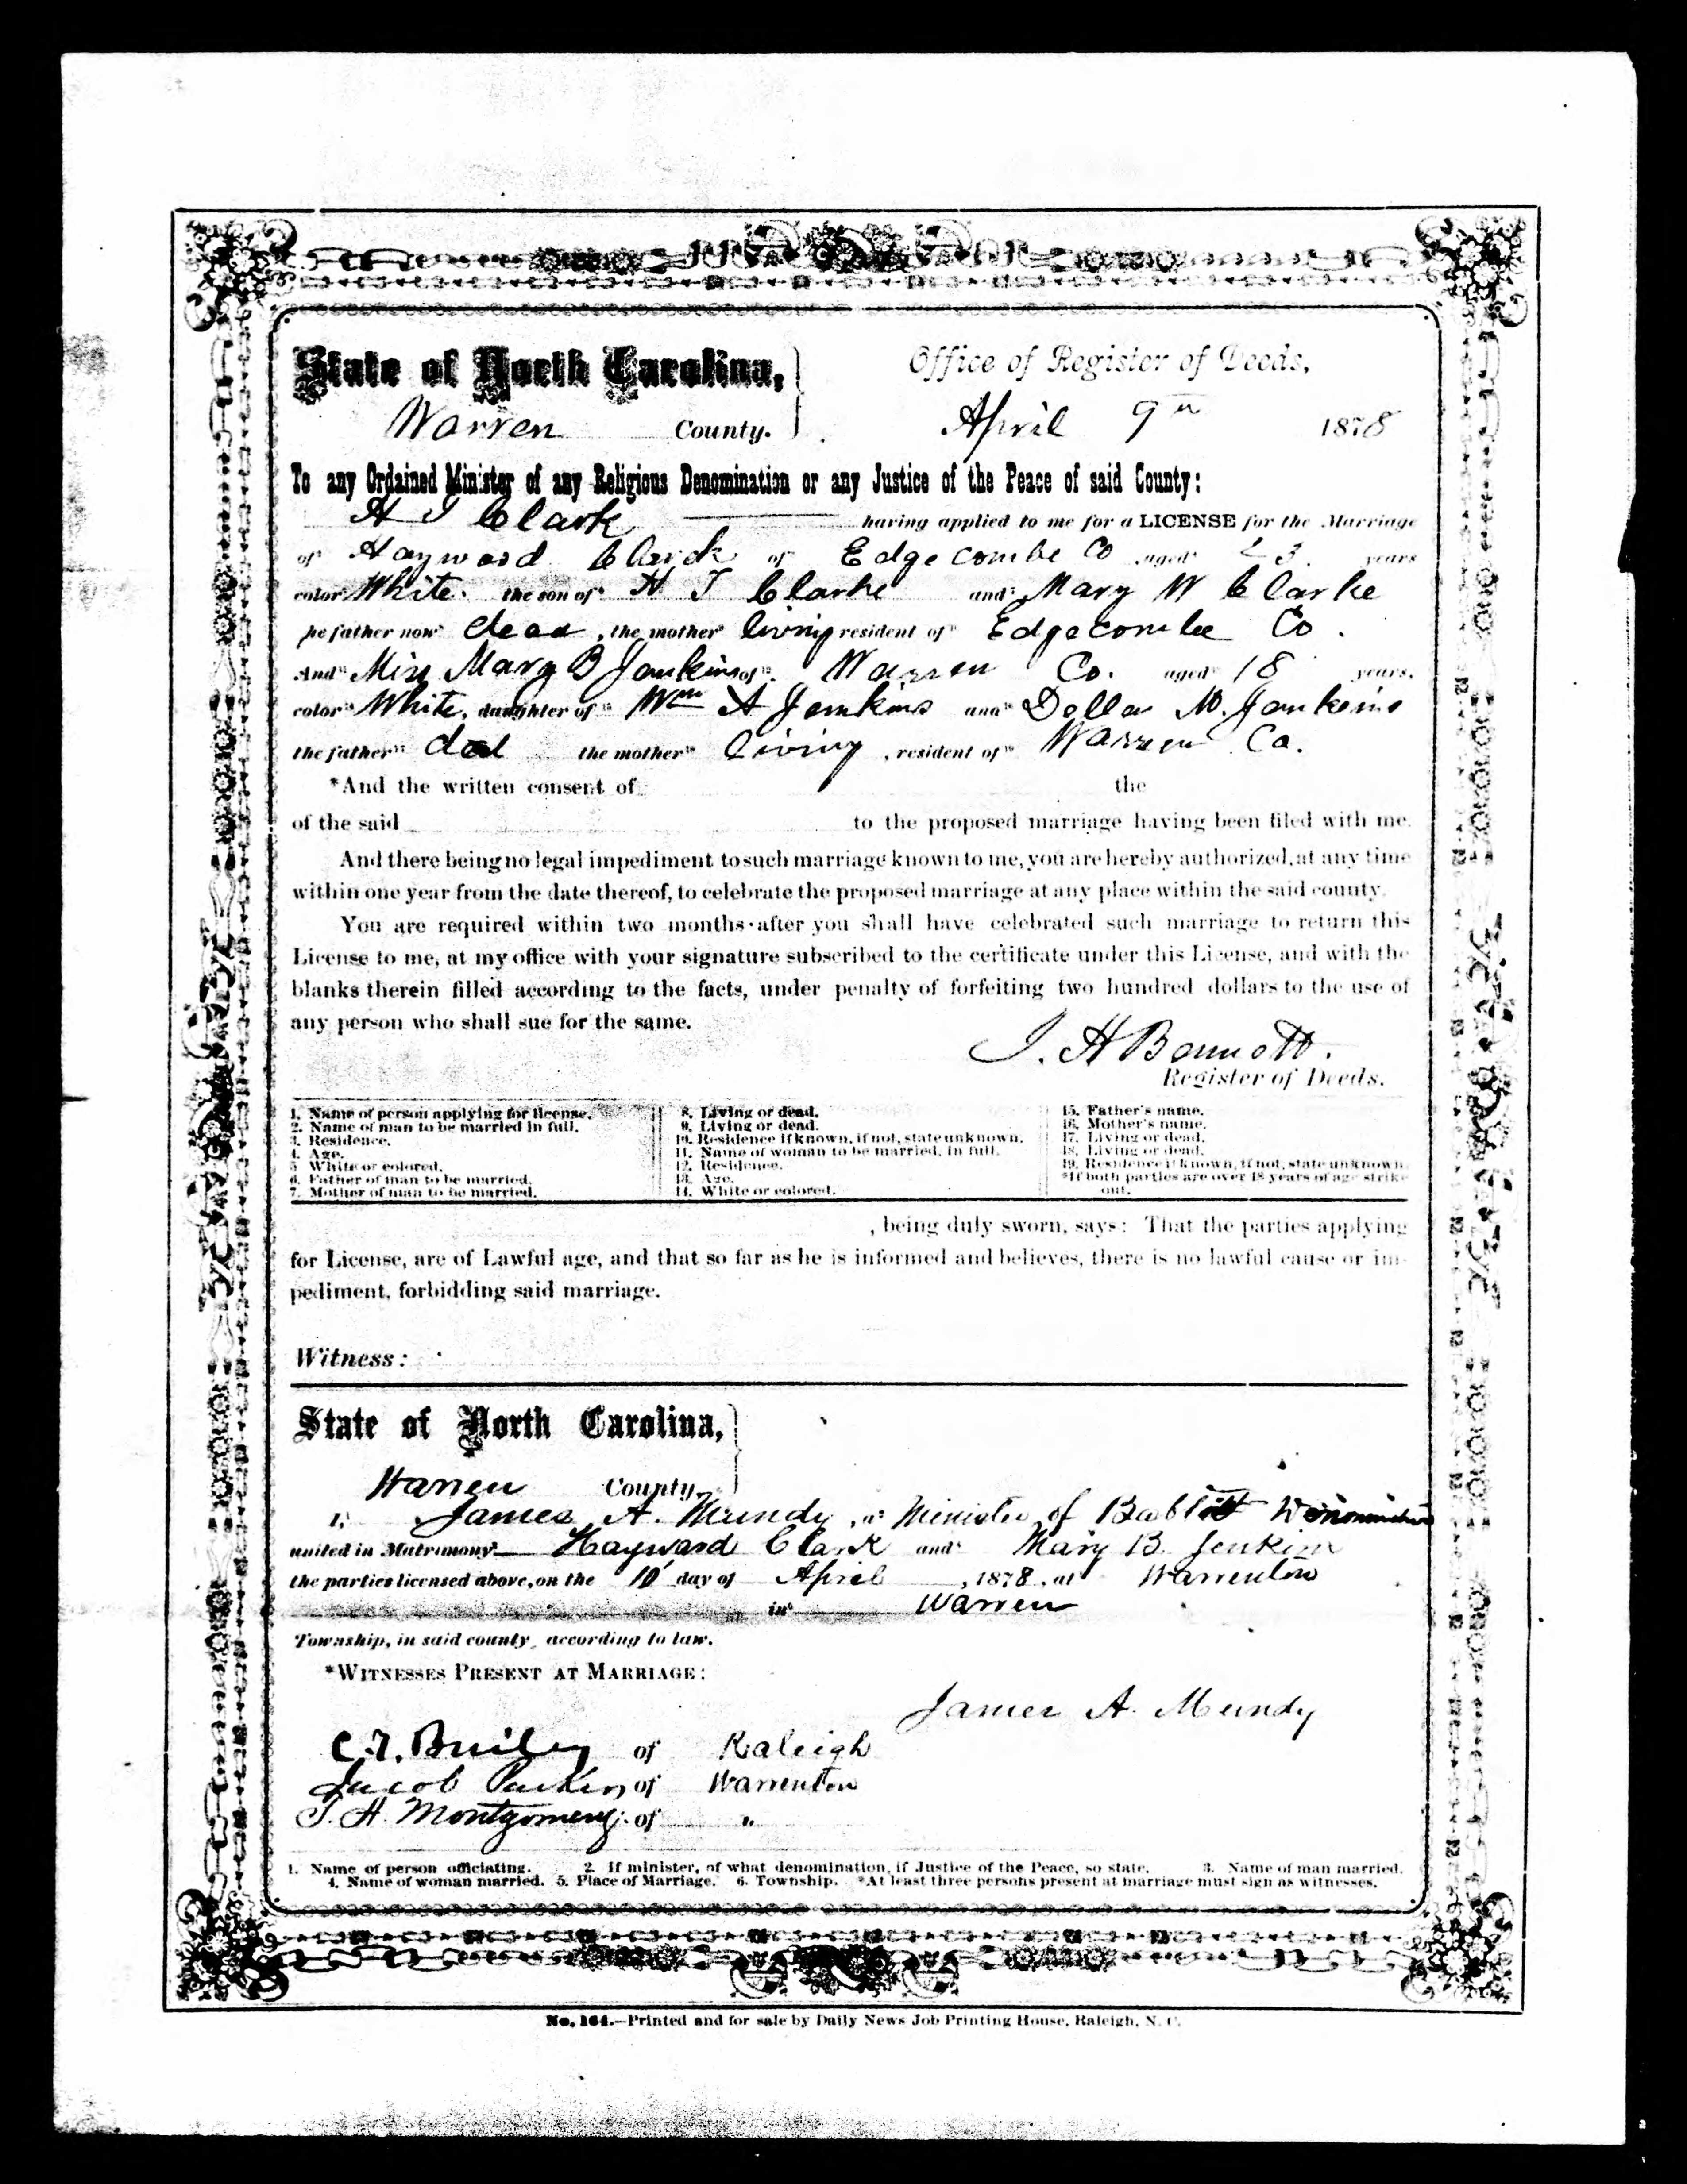 State of North Carolina, Office of Register of Deeds,
Warren County. April 9th 1878
To any Ordained Minister of any Religious Denomination or any Justice of the Peace of said County:
H J Clark having applied to me for a LICENSE for the Marriage
of Hayward Clark of Edgecombe Co aged 23 years
color White. the son of H T Clarke and Mary W Clarke
he father now dead, the mother living resident of Edgecombe Co.
And Miss Mary B Jenkins of Warren Co. aged 18 years,
color White, daughter of Wm A Jenkins and Della M. Jenkins
the father ded the mother living, resident of Warren Co.
*And the written consent of the
of the said to the proposed marriage having been filed with me.
And there being no legal impediment to such marriage known to me, you are hereby authorized, at any time
within one year from the date thereof, to celebrate the proposed marriage at any place within the said county.
You are required within two months after you shall have celebrated such marriage to return this
License to me, at my office with your signature subscribed to the certificate under this License, and with the
blanks therein filled according to the facts, under penalty of forfeiting two hundred dollars to the use of
any person who shall sue for the same.
J. H Bennett.
Register of Deeds.
1. Name of person applying for license.
2. Name of man to be married in full.
3. Residence.
4. Age.
5 White or colored.
6. Father of man to be married.
7. Mother of man to be married.
8. Living or dead.
9. Living or dead.
10. Residence if known, if not, state unknown.
11. Name of woman to be married, in full.
12. Residence.
13. Age.
14. White or colored.
15. Father's name.
16. Mother's name.
17. Living or dead.
18. Living or dead.
19. Residence if known, if not, state unknown.
*If both parties are over 18 years of age strike
out.
, being duly sworn, says: That the parties applying
for License, are of Lawful age, and that so far as he is informed and believes, there is no lawful cause or im-
pediment, forbidding said marriage.
Witness:
State of North Carolina,
Warren County.
I, James A. Mundy, a Minister of Babtist Denomination
united in Matrimony Hayward Clark and Mary B. Jenkins
the parties licensed above, on the 10 day of April, 1878, at Warrenton
in Warren
Township, in said county, according to law.
*WITNESSES PRESENT AT MARRIAGE:
James A. Mundy
C.T. Bailey of Raleigh
Jacob Parker of Warrenton
T. H. Montgomery of "
1. Name of person officiating. 2. If minister, of what denomination, if Justice of the Peace, so state. 3. Name of man married.
4. Name of woman married. 5. Place of Marriage. 6. Township. *At least three persons present at marriage must sign as witnesses.
No. 164.—Printed and for sale by Daily News Job Printing House, Raleigh, N. C.